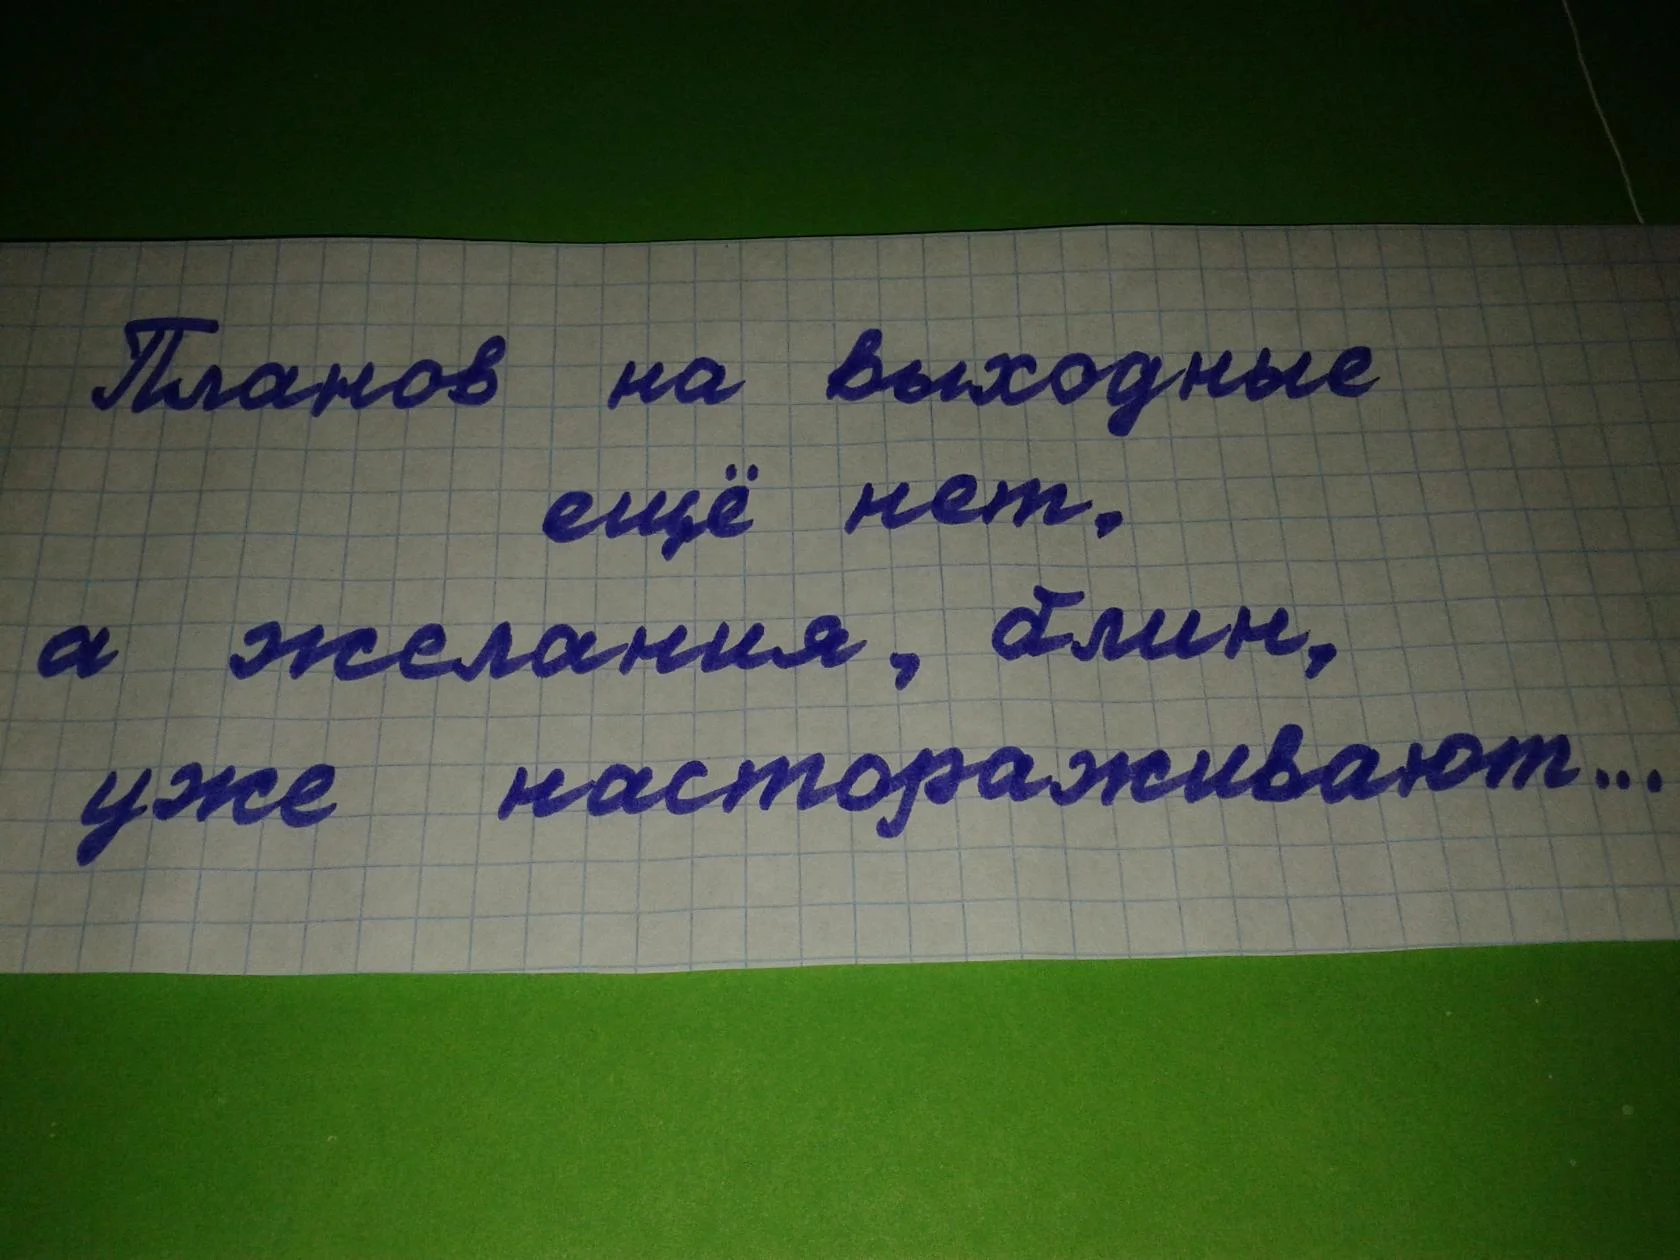 Планов на выходные
ещё нет.
а желания, блин,
уже настораживают...